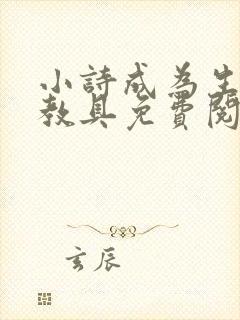 小詩成為生
教具免費閱
玄辰